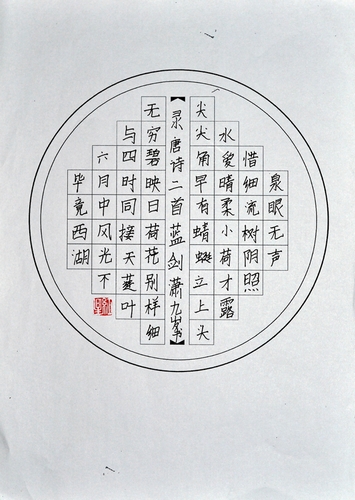 泉眼无声
惜细流树阴照
水爱晴柔小荷才露
尖尖角早有蜻蜓立上头
毕竟西湖
六月中风光不
与四时同接天莲叶
无穷碧映日荷花别样细
【录唐诗二首蓝剑萧九峯书】